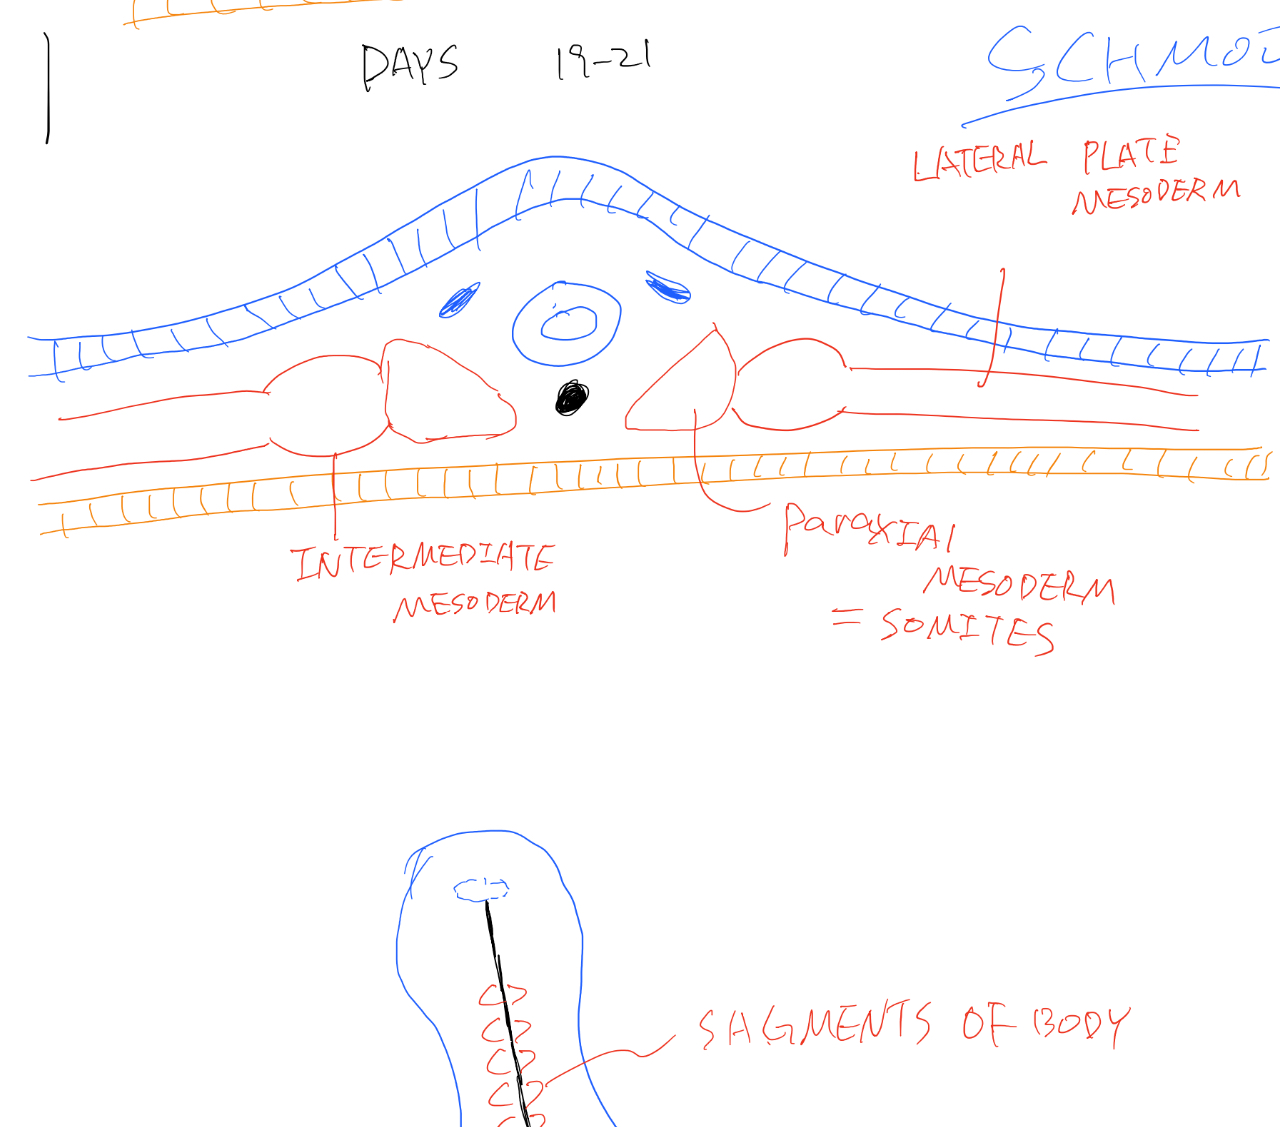 DAYS 19-21
LATERAL PLATE
MESODERM
INTERMEDIATE
MESODERM
ParaxIAl
MESODERM
= SOMITES
SAGMENTS OF BODY